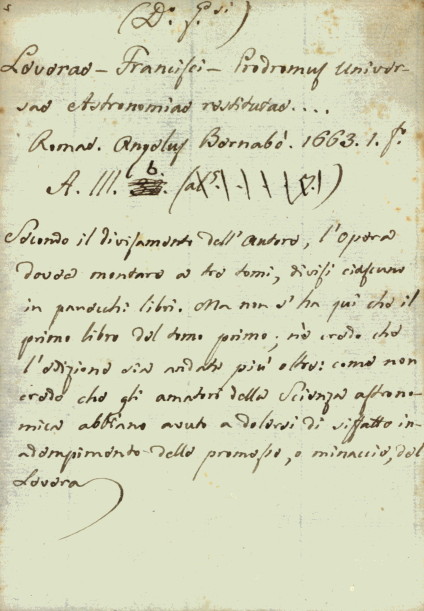 5
(D.º G.si)
Leverae - Francisci - Prodromus Univer-
sae Astronomiae restitutae....
Romae. Angelus Bernabò. 1663. 1. fo.
A. III. 6.
Secondo il divisamento dell'Autore, l'Opera
dovea montare a tre tomi, divisi ciascuno
in parecchi libri. Ma non s'ha quì che il
primo libro del tomo primo; nè credo che
l'edizione sia andata più oltre: come non
credo che gli amatori della Scienza astrono-
mica abbiano avuto a dolersi di siffatto in-
adempimento delle promesse, o minaccie, del
Levera